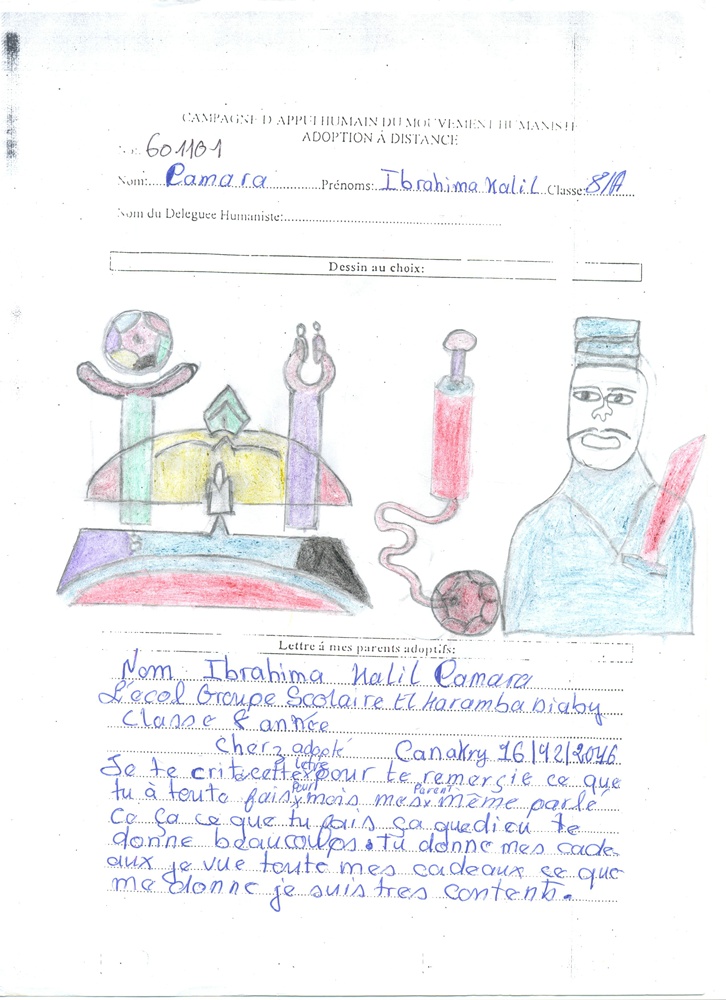 CAMPAGNE D'APPUI HUMAIN DU MOUVEMENT HUMANISTE
ADOPTION À DISTANCE
601101
Nom: Camara Prénoms: Ibrahima Kalil Classe: 8/A
Nom du Deleguee Humaniste:
Dessin au choix:
Lettre á mes parents adoptifs:
Nom Ibrahima Kalil Camara
L'ecol Groupe Scolaire El Karamba Diaby
Classe 8e année
Cherz adopté Canakry 16/12/2016
Je te crit cette letre pour te remerçie ce que
tu à toute fais pour mois mes Parent même parlé
ce ça ce que tu fais ça quedieu te
donne beaucoups. tu donne mes cade
aux je vue toute mes cadeaux ce que
me donne je suis tres contents.